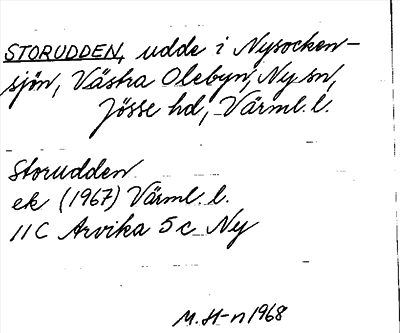 STORUDDEN, udde i Nysocken-
sjön, Västra Olebyn, Ny sn,
Jösse hd, Värml. l.
Storudden
ek (1967) Värml. l.
11C Arvika 5c Ny
M. H-n 1968